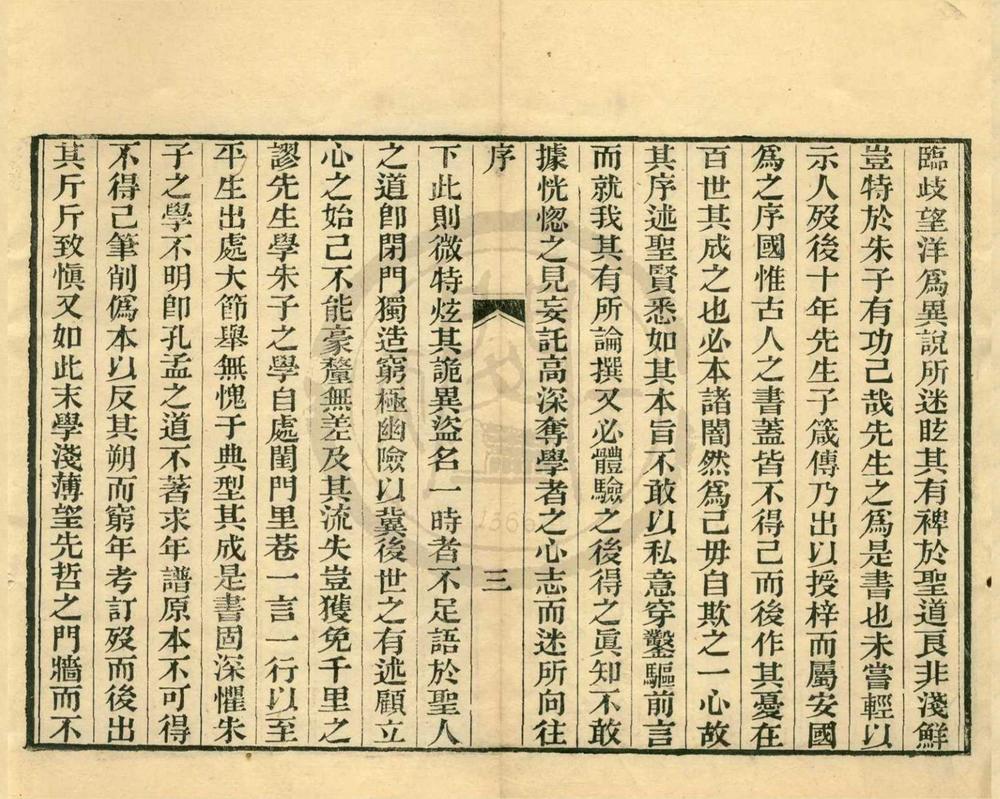 臨歧望洋爲異說所迷眩其有裨於聖道良非淺鮮
豈特於朱子有功已哉先生之爲是書也未嘗輕以
示人歿後十年先生子箴傳乃出以授梓而屬安國
爲之序國惟古人之書蓋皆不得已而後作其憂在
百世其成之也必本諸闇然爲己毋自欺之一心故
其序述聖賢悉如其本旨不敢以私意穿鑿驅前言
而就我其有所論撰又必體驗之後得之眞知不敢
據恍惚之見妄託高深奪學者之心志而迷所向往
序
三
下此則微特炫其詭異盜名一時者不足語於聖人
之道卽閉門獨造窮極幽險以冀後世之有述顧立
心之始已不能豪釐無差及其流失豈獲免千里之
謬先生學朱子之學自處閨門里巷一言一行以至
平生出處大節舉無愧于典型其成是書固深懼朱
子之學不明卽孔孟之道不著求年譜原本不可得
不得已筆削僞本以反其朔而窮年考訂歿而後出
其斤斤致愼又如此末學淺薄望先哲之門牆而不